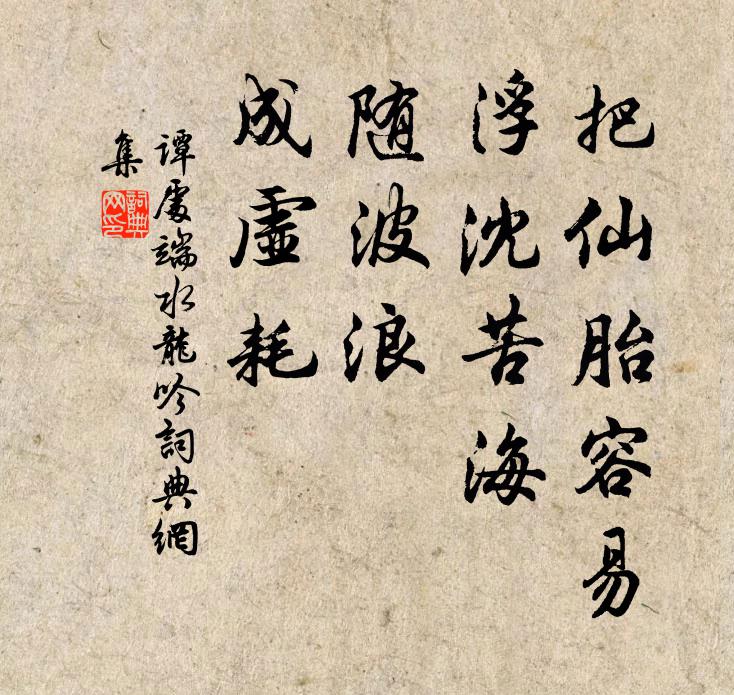 把仙胎容易
浮沈苦海
随波浪
成虚耗
谭处端水龍吟詞典網
集
詞典
网印